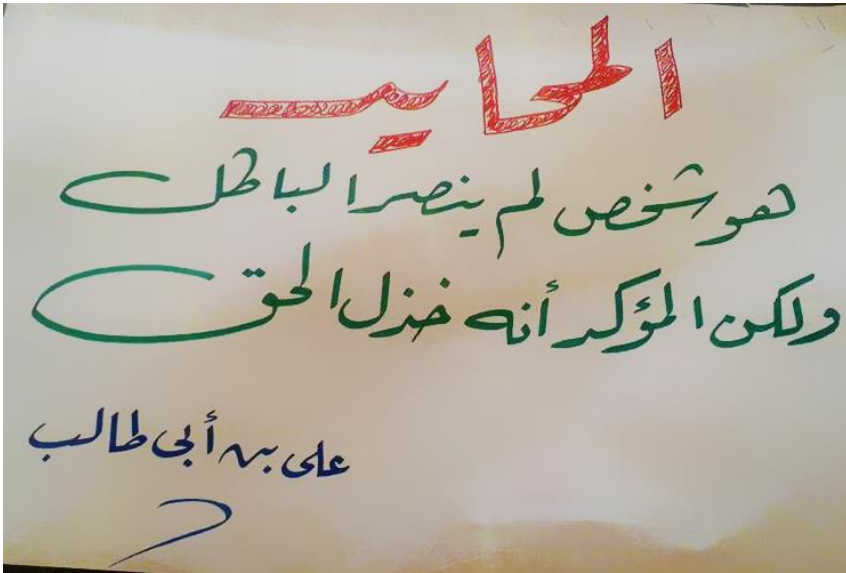 المحايد
هو شخص لم ينصر الباطل
ولكن المؤكد أنه خذل الحق
على بن أبى طالب